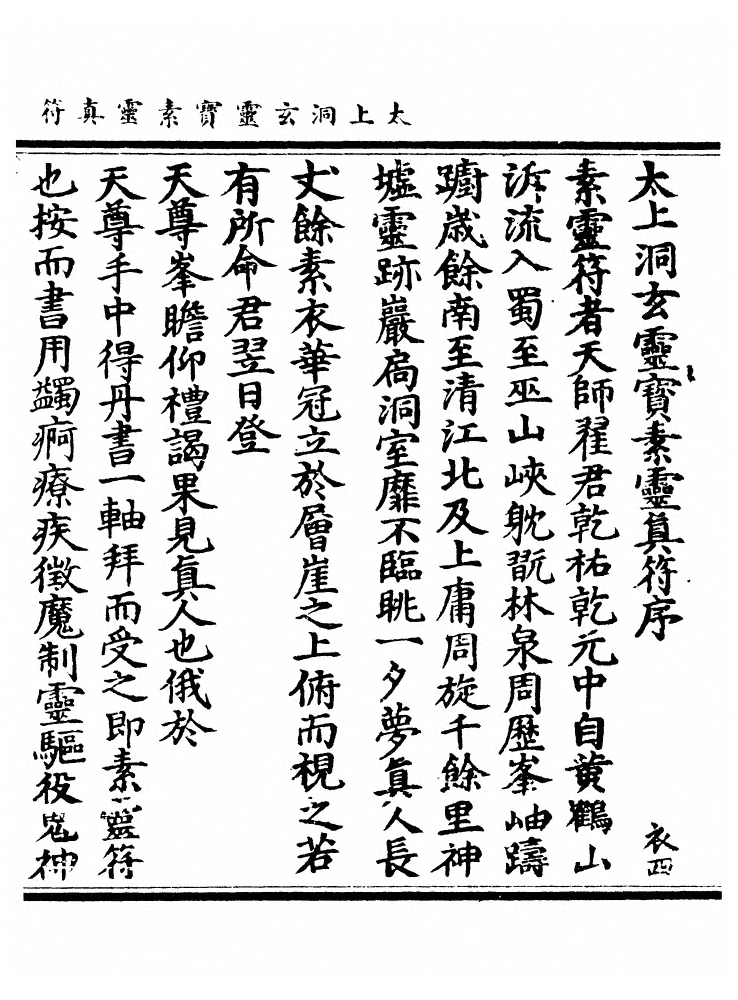 太上洞玄靈寶素靈真符
太上洞玄靈寶素靈真符序
衣四
素靈符者天師翟君乾祐乾元中自黃鶴山
泝流入蜀至巫山峽躭翫林泉周歷峯岫躊
躕歲餘南至清江北及上庸周旋千餘里神
墟靈跡巖扃洞室靡不臨眺一夕夢真人長
丈餘素衣華冠立於層崖之上俯而視之若
有所命君翌日登
天尊峯瞻仰禮謁果見真人也俄於
天尊手中得丹書一軸拜而受之即素靈符
也按而書用蠲痾療疾徵魔制靈驅役鬼神